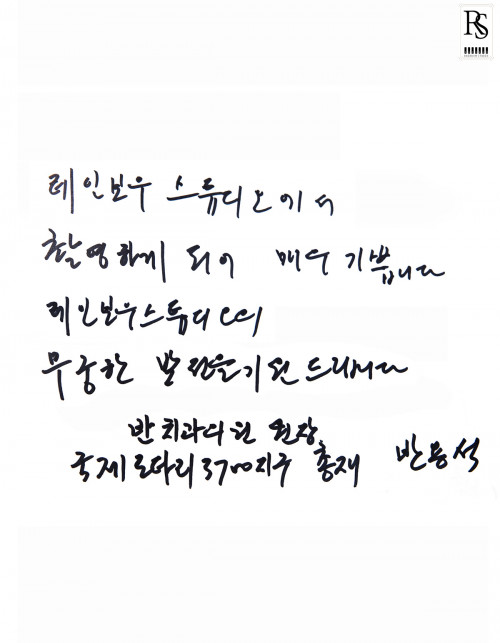 RS
레인보우 스튜디오에서
촬영하게 되어 매우 기쁩니다
레인보우스튜디오의
무궁한 발전을 기원드리며다
반치과의원 원장
국제로타리3700지구 총재 반용석